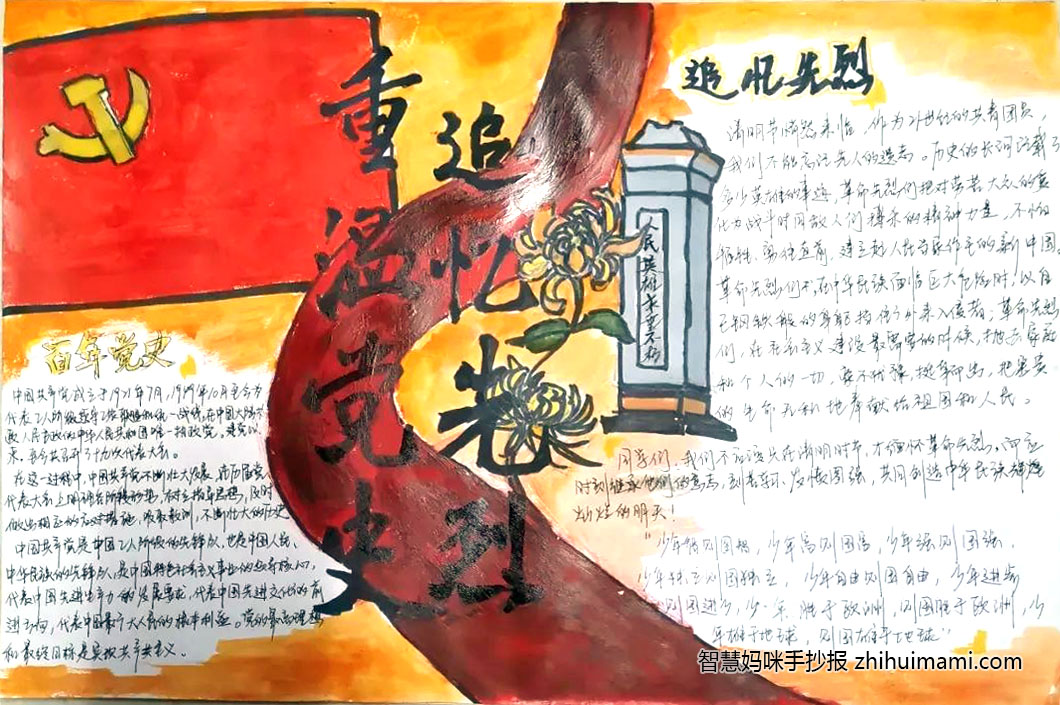 重温党史
追忆先烈
百年党史
中国共产党成立于1921年7月,1949年10月至今为
代表工人阶级领导工农联盟和统一战线,在中国大陆
人民民主政的中华人民共和国唯一执政党。建党以
来,至今共召开了十九次代表大会。
在这一过程中,中国共产党不断壮大发展,而历届党
代表大会上
做出相应的应对措施,吸取教训,不断壮大的历史
中国共产党是中国工人阶级的先锋队,也是中国人民、
中华民族的先锋队,是中国特色社会主义事业的领导核心,
代表中国先进生产力的发展要求,代表中国先进文化的前
进方向,代表中国最广大人民的根本利益。党的最高理想
和最终目标是实现共产主义。
追忆先烈
人民英雄永垂不朽
清明节悄然来临,作为21世纪的共青团员,
我们不能忘记先人的遗志。历史的长河记载了
多少英雄的事迹,革命先烈们把对劳苦大众的爱
化为战斗时同敌人们搏杀的精神力量,不怕
牺牲,勇往直前,建立起人民当家作主的新中国。
革命先烈们,在中华民族面临巨大危险时,以自
己钢铁般的身躯抵御外来入侵者;革命先烈
们,在社会主义建设最需要的时候,抛弃家庭
和个人的一切,毫不犹豫,挺身而出,把宝贵
的生命无私地奉献给祖国和人民。
同学们,我们不应该只在清明时节,才缅怀革命先烈,而应
时刻继承他们的遗志,刻苦学习,发愤图强,共同创造中华民族辉煌
灿烂的明天!
“少年智则国智,少年富则国富,少年强则国强,
少年独立则国独立,少年自由则国自由,少年进步
则国进步,少年胜于欧洲,则国胜于欧洲,少
年雄于地球,则国雄于地球”
智慧妈咪手抄报 zhihuimami.com